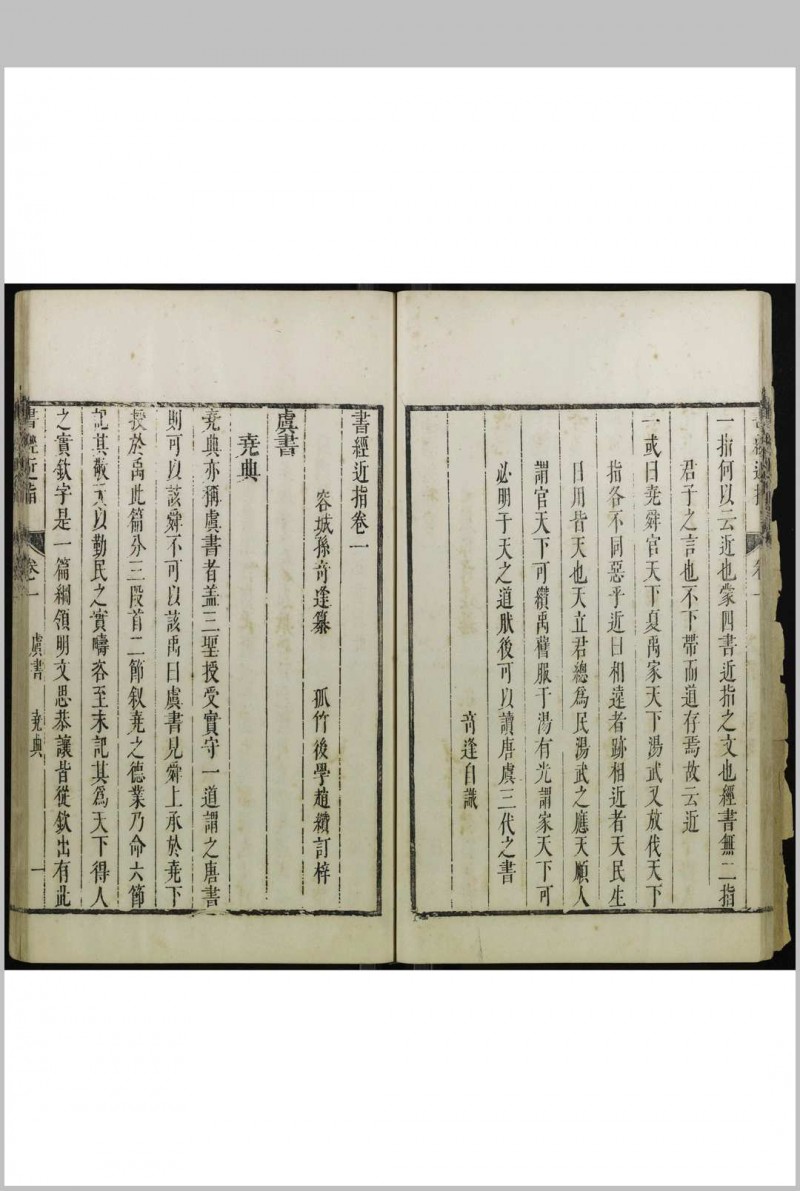 一指何以云近也蒙四書近指之文也經書無二指
君子之言也不下帶而道存焉故云近
一或曰堯舜官天下夏禹家天下湯武又放伐天下
指各不同惡乎近曰相遠者跡相近者天民生
日用皆天也天立君總為民湯武之應天順人
謂官天下可纘禹舊服于湯有光謂家天下可
必明于天之道肰後可以讀唐虞三代之書
奇逢自識
書經近指卷一
容城孫奇逢纂　孤竹後學趙纘訂梓
虞書
堯典
堯典亦稱虞書者盖三聖授受實守一道謂之唐書
則可以該舜不可以該禹曰虞書見舜上承於堯下
授於禹此篇分三段首二節叙堯之德業乃命六節
記其敬天以勤民之實疇咨至末記其為天下得人
之實欽字是一篇綱領明文思恭讓皆從欽出有此
書經近指　卷一　虞書　堯典　一